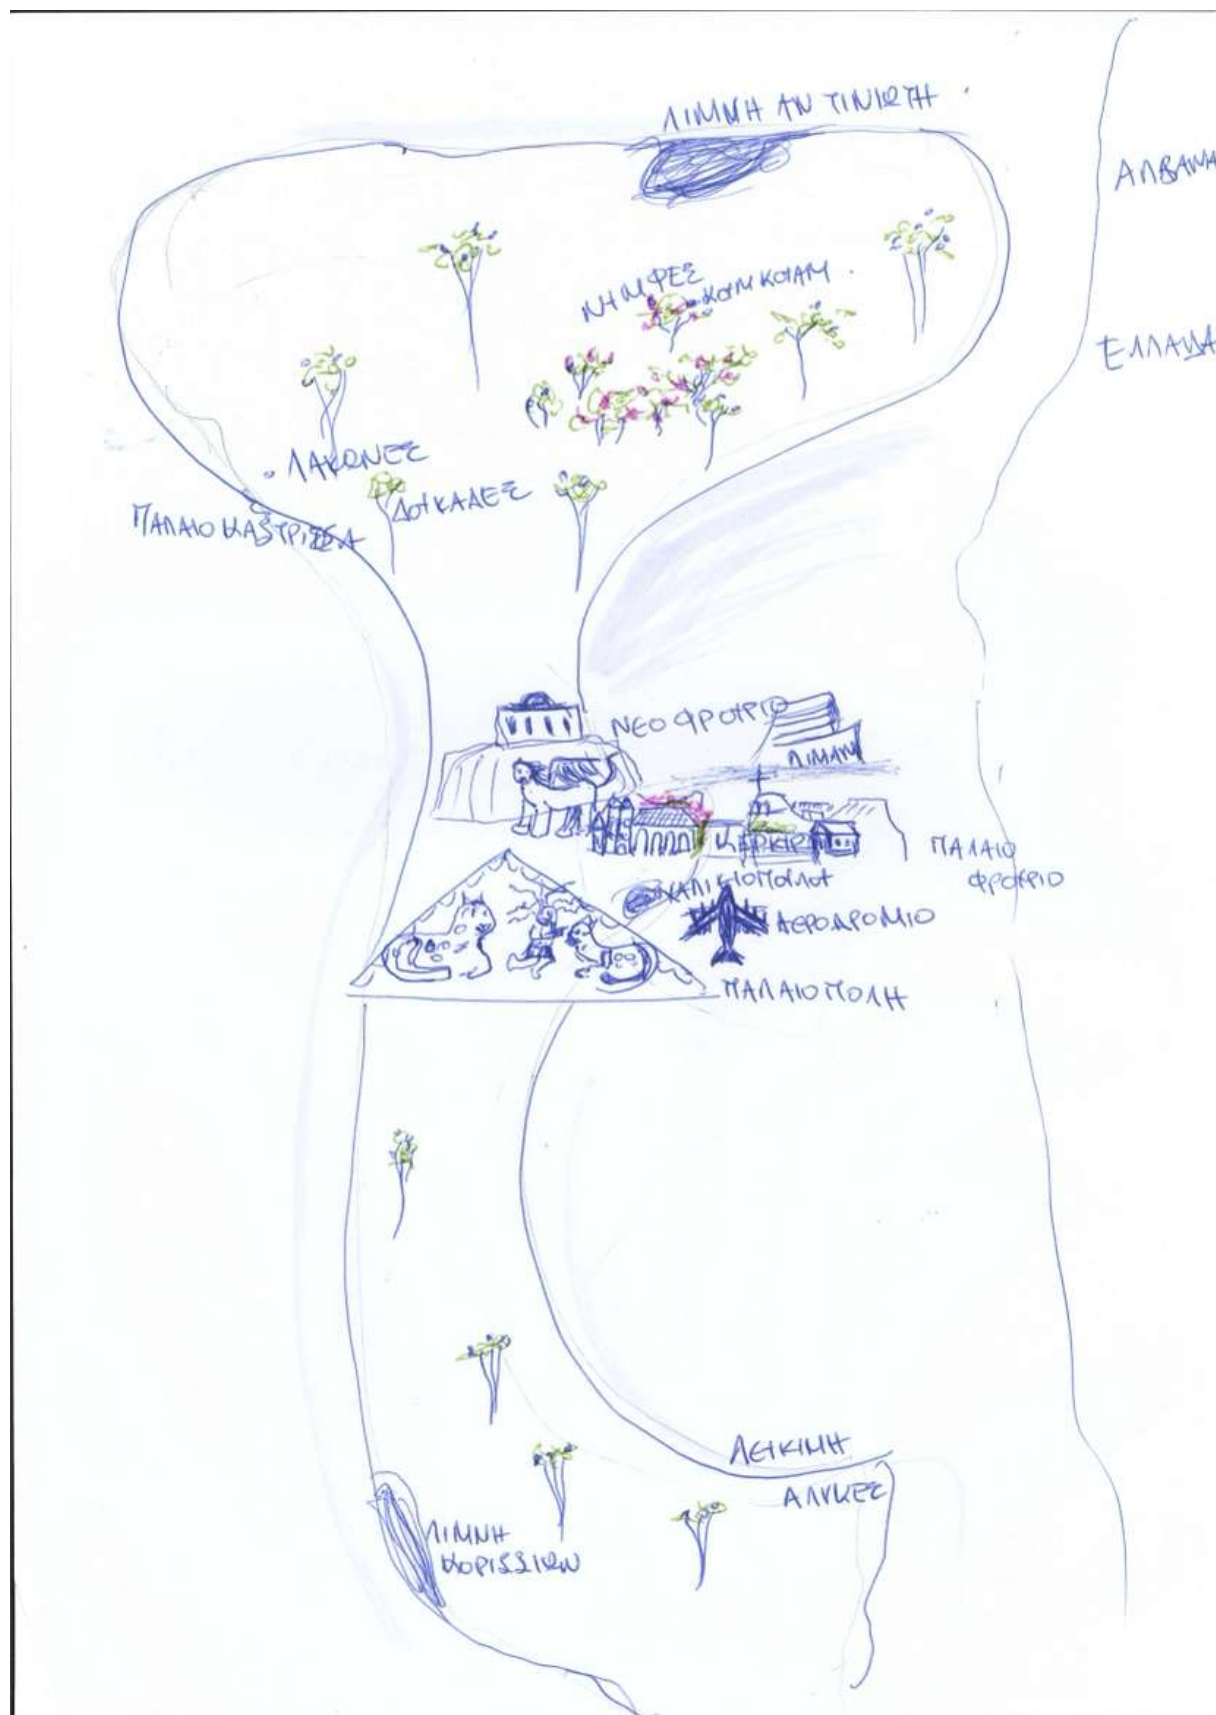 ΛΙΜΝΗ ΑΝΤΙΝΙΩΤΗ
ΑΛΒΑΝΙΑ
ΝΥΜΦΕΣ
ΚΟΥΜ ΚΟΥΑΤ
ΕΛΛΑΔΑ
ΛΑΚΩΝΕΣ
ΔΟΥΚΑΔΕΣ
ΠΑΛΑΙΟΚΑΣΤΡΙΤΣΑ
ΝΕΟ ΦΡΟΥΡΙΟ
ΛΙΜΑΝΙ
ΚΕΡΚΥΡΑ
ΠΑΛΑΙΟ
ΦΡΟΥΡΙΟ
ΧΑΛΙΚΙΟΠΟΥΛΟΥ
ΑΕΡΟΔΡΟΜΙΟ
ΠΑΛΑΙΟΠΟΛΗ
ΛΕΥΚΙΜΗ
ΑΛΥΚΕΣ
ΛΙΜΝΗ
ΚΟΡΙΣΣΙΩΝ